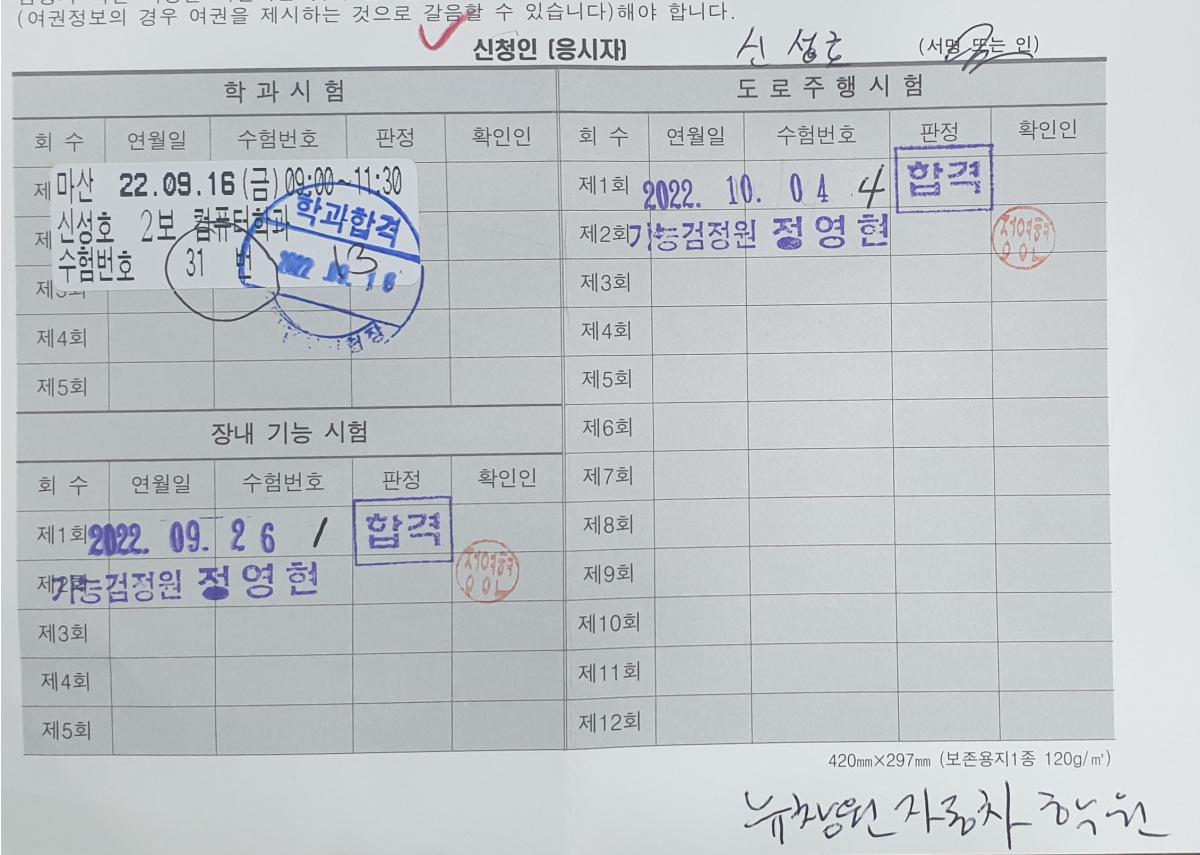 (여권정보의 경우 여권을 제시하는 것으로 갈음할 수 있습니다)해야 합니다.
신청인 (응시자) 신성호 (서명 또는 인)
학과시험
회 수 연월일 수험번호 판정 확인인
마산 22.09.16(금)09:00~11:30
신성호 2보 컴퓨터학과
수험번호 31 번
학과합격
2022 .09. 16
13
험장
제4회
제5회
장내 기능 시험
회 수 연월일 수험번호 판정 확인인
제1회 2022. 09. 26 1 합격
제2회 기능검정원 정영현
제3회
제4회
제5회
도로주행시험
회 수 연월일 수험번호 판정 확인인
제1회 2022. 10. 04 4 합격
제2회 기능검정원 정영현
제3회
제4회
제5회
제6회
제7회
제8회
제9회
제10회
제11회
제12회
420㎜×297㎜ (보존용지1종 120g/㎡)
뉴창원자동차학원